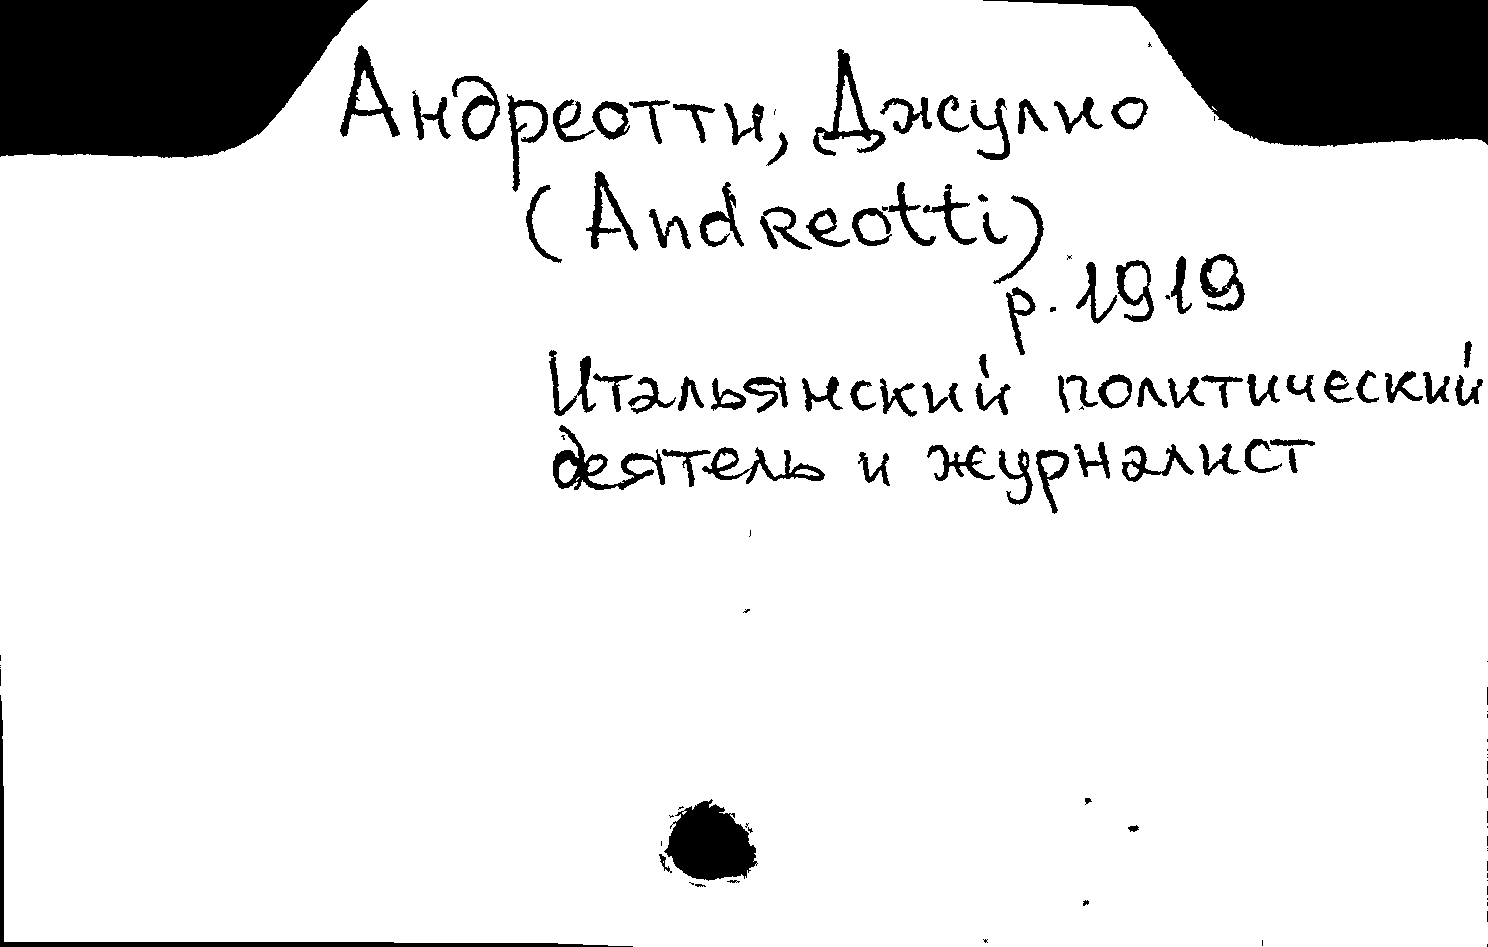 Андреотти, Джулио
(Andreotti)
р. 1919
Итальянский политический
деятель и журналист